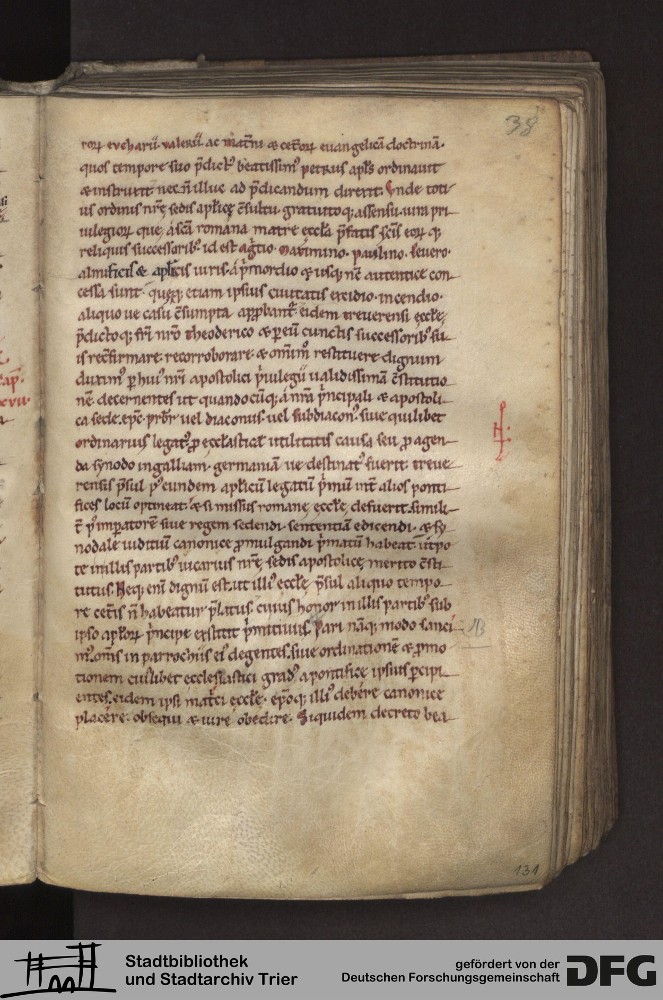 38
rorꝝ eucharii valerii ac mat̄ni & cet̄orꝝ euangelicā doctrinā.
quos tempore suo p̄dict᷒ beatissim᷒ petrus apl̄s ordinauit
& instruxit nec n̄ illuc ad p̄dicandum direxit. Vnde toti
us ordinis nr̄ę sedis apl̄icę c̄sultu gratuitoq; assensu. iura pri
uilegiorꝝ que, a sc̄a romana matre eccl̄a p̄fatis sc̄is eorꝝ q;
reliquis successorib᷒. id est agr̄tio. Maximino. paulino. seuero.
almificis & apl̄icis uiris. a p̄mordio & usq; nc̄ autentice con
cessa sunt. quęq; etiam ipsius ciuitatis excidio. incendio.
aliquo ue casu c̄sumpta app̄robant᷒. eidem treuerensi eccl̄ę,
p̄dictoq; fr̄i nr̄o Theoderico & p̄ eū cunctis successorib᷒ su
is rec̄firmare. recorroborare & om̄im restituere dignum
duxim᷒. p̄ hui᷒ nr̄i apostolici p̄iuilegii ualidissimā c̄stitutio
nē. decernentes ut quandocūq; a nr̄a p̄ncipali & apostoli
ca sede. ep̄c. pr̄br̄ uel diaconus. uel subdiacon᷒. siue quilibet
ordinarius legat᷒. p̄ ecclasticat utilitatis causa seu p̄ agen
da synodo in galliam. germaniā ue destinat᷒ fuerit. treue
rensis p̄sul p᷒ eundem apl̄icū legatū p̄mū int̄ alios ponti
fices locū optineat. & si missus romane eccl̄ę, defuerit. simili
t̄ p᷒ imperatorē siue regem sedendi. sententiā edicendi. & sy
nodale iuditiū canonice p̄mulgandi p̄matū habeat. ut po
te in illis partib᷒ uicarius nr̄ę, sedis apostolicę, merito c̄sti
tutus. Neq; eni dignū est. ut illi᷒ eccl̄ę, p̄sul aliquo tempo
re cet̄is n̄ habeatur p̄latus. cuius honor in illis partib᷒ sub
ipso apl̄orꝝ p̄ncipe exstitit p̄mitiuus. Pari nāq; modo sanci
m᷒. om̄s in parrochiis ei᷒ degentes. siue ordinationē & p̄mo
tionem cuilibet ecclesiastici grad᷒ a pontifice ipsius p̄cipi
entes. eidem ipsi mat̄ci eccl̄ę. ep̄oq; illi᷒ debere canonice
placere. obsequi & iure obedire. Siquidem decreto bea
131
Stadtbibliothek
und Stadtarchiv Trier
gefördert von der
Deutschen Forschungsgemeinschaft
DFG